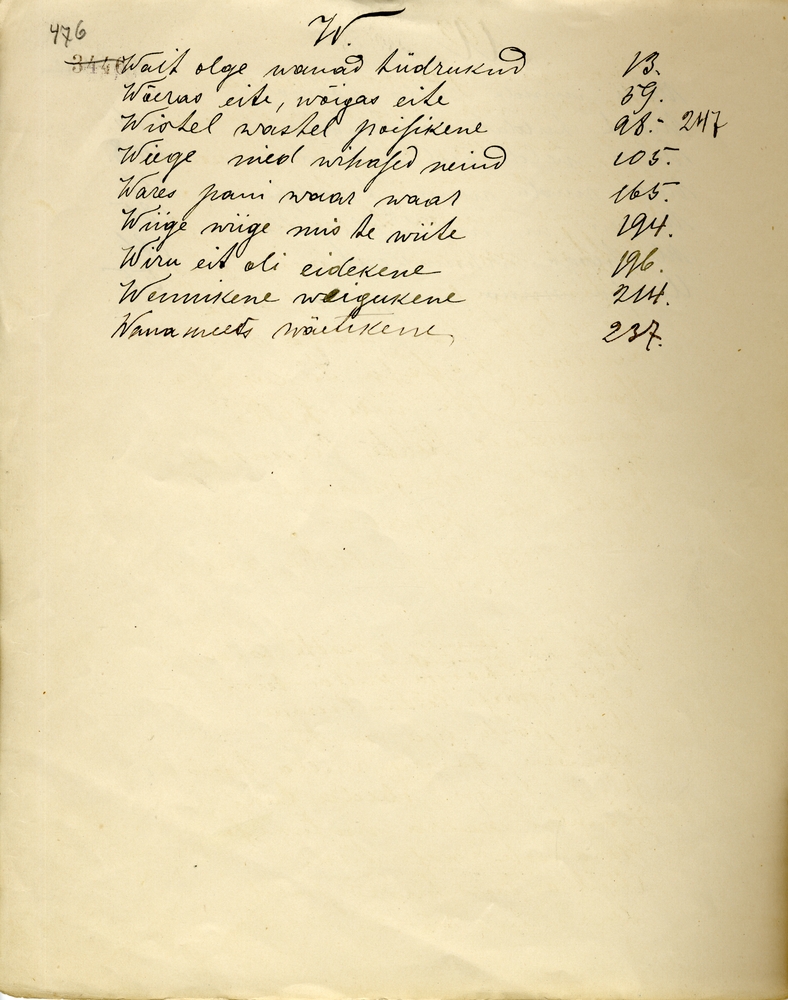 476
W.
Wait olge wanad tüdrukud 13.
Wõeras eite, wõigas eite 59.
Wistel wastel poisikene 98. 247
Wiege nied wihased neiud 105.
Wares pani waar waar 165.
Wiige wiige mis te wiite 194.
Wiru eit oli eidekene 196.
Wennikene weigukene 214.
Wanameets wäetikene 237.